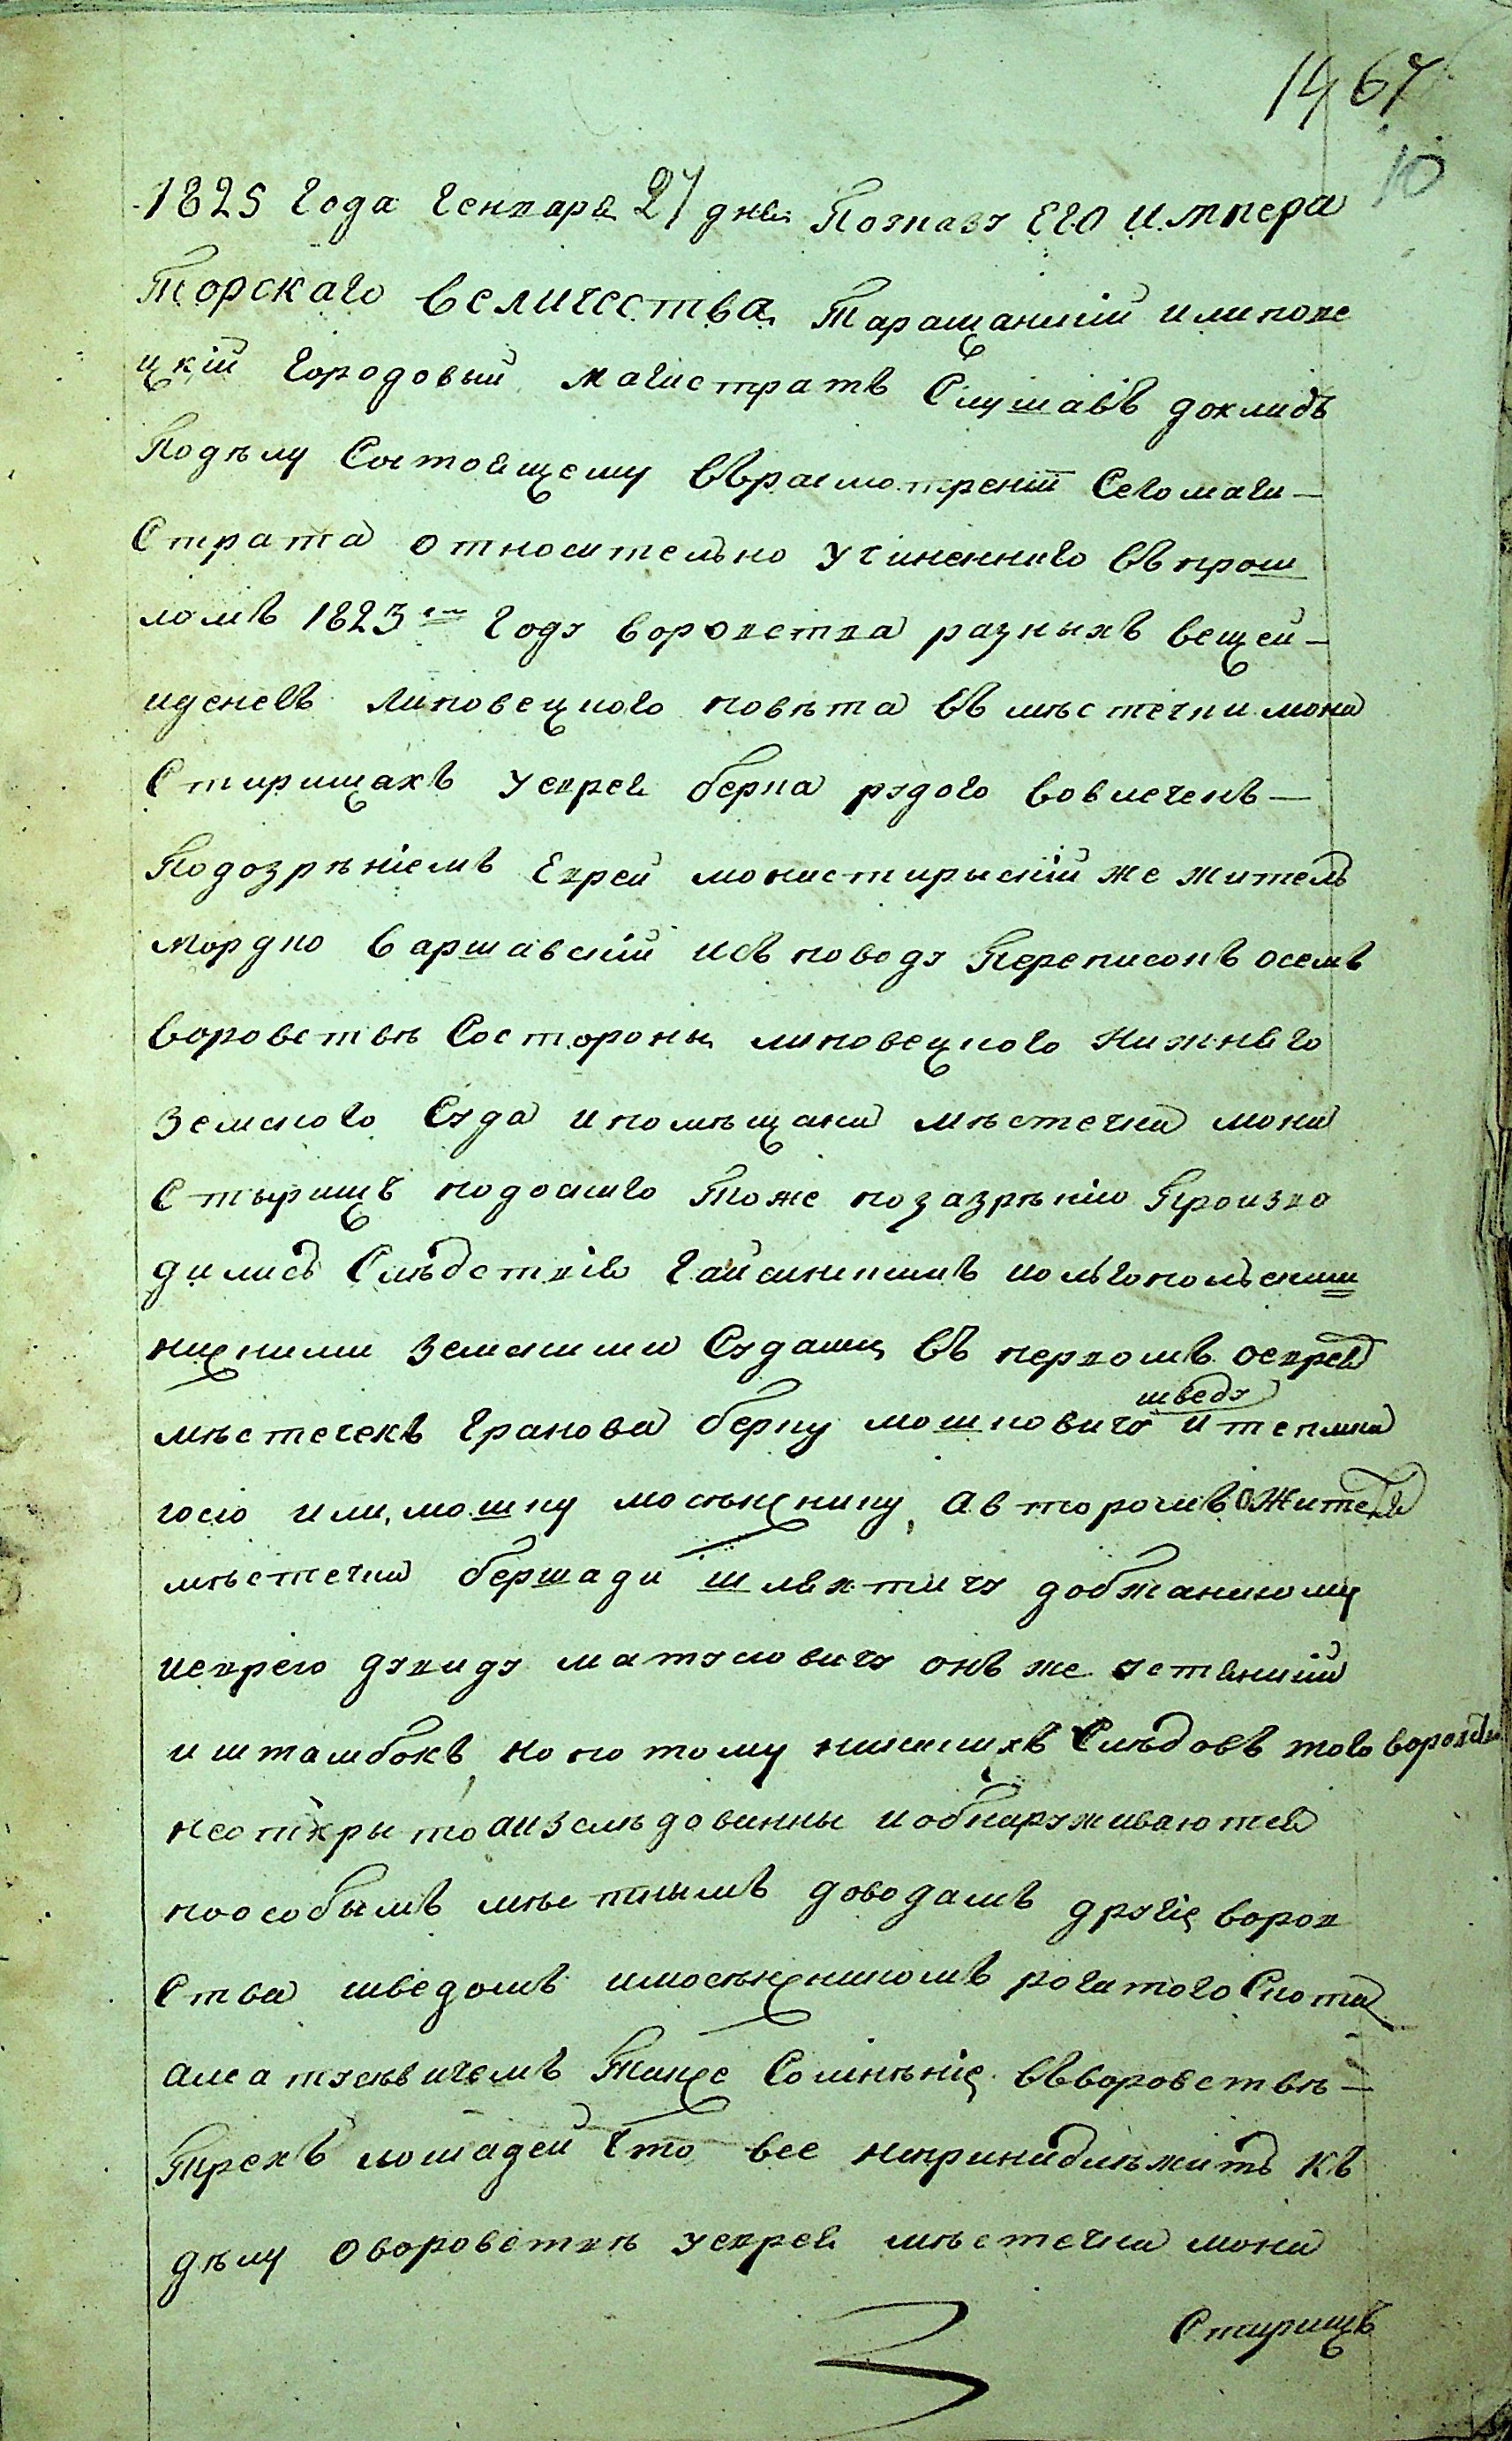 1467
10
1825 года Генваря 27 дня По указу Его импера
торскаго величества Таращанскій и липове
цкій городовый магистратъ Слушавъ докладъ
По дѣлу Состоящему въ расмотреніи Сего маги—
Страта относительно учиненнаго въ прош
ломъ 1823ᵐ году воровства разныхъ вещей—
и денегъ Липовецкого повѣта въ мѣстечки мона
Стирищахъ у еврея берка рудого вовлеченъ—
Подозрѣніемъ Еврей монастирыскій же житель
Мордко варшавскій и съ поводу Переписокъ о семъ
воровствѣ Состороны липовецкого Нижняго
земского Суда и помѣщика мѣстечка мона
Стырищъ подоского Тоже по зазрѣнію Произво
дились Слѣдствія Гайсинскимъ и ольгопольским
нижними земскими Судами въ первомъ о еврея
мѣстечекъ Гранова берку мошковичу шведу и теплика
госю или мошку мосѣнжнику, а втором о Жителя
мѣстечка бершади шляхтичу добжанскому
и еврею давиду матусовичу онъ же устянскій
и штамбокъ, но по тому никакихъ Слѣдовъ того воровства
не открыто а изслѣдованны и обнаруживаются
по особымъ мѣстнымъ доводамъ другіе воров
Ства шведомъ и мосѣнжникомъ рогатого Скота
а матусѣвичемъ Также Сомнѣніе въ воровствѣ—
Трехъ лошадей Что все непринадлежитъ къ
дѣлу о воровствѣ у еврея мѣстечка мона
Стирищъ